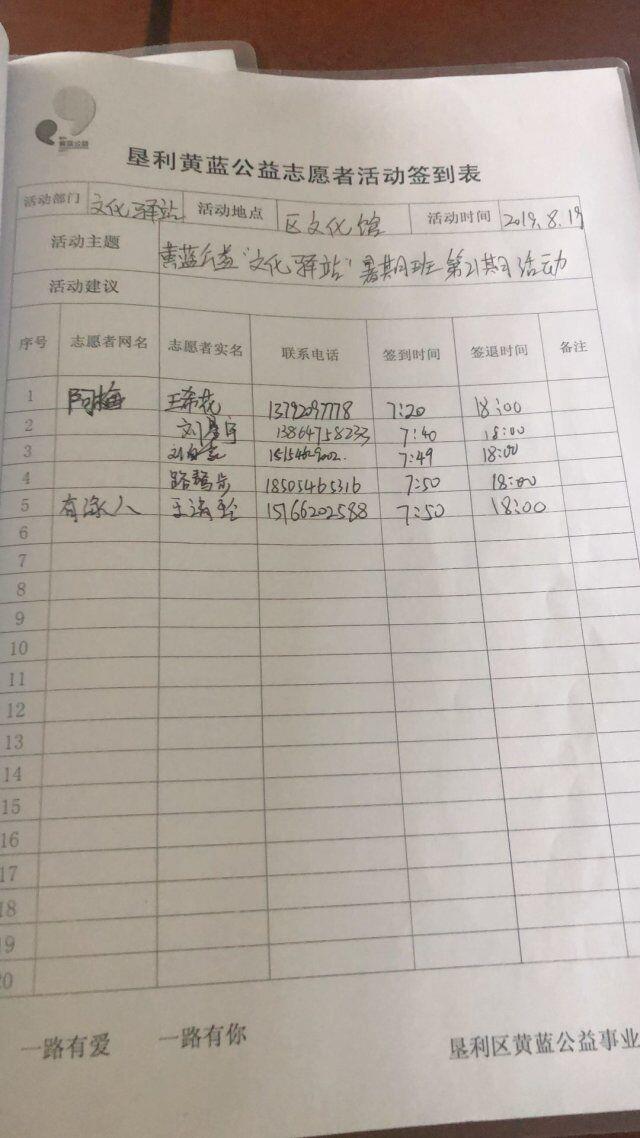 黄蓝公益
垦利黄蓝公益志愿者活动签到表
活动部门 文化驿站 活动地点 区文化馆 活动时间 2019.8.19
活动主题 黄蓝公益"文化驿站"暑期班第21期活动
活动建议
序号 志愿者网名 志愿者实名 联系电话 签到时间 签退时间 备注
1 阿梅 王希花 13792097778 7:20 18:00
2 13864758233 7:40 18:00
3 7:49 18:00
4 18505465316 7:50 18:00
5 有缘人 15166202588 7:50 18:00
6
7
8
9
10
11
12
13
14
15
16
17
18
19
20
一路有爱 一路有你 垦利区黄蓝公益事业